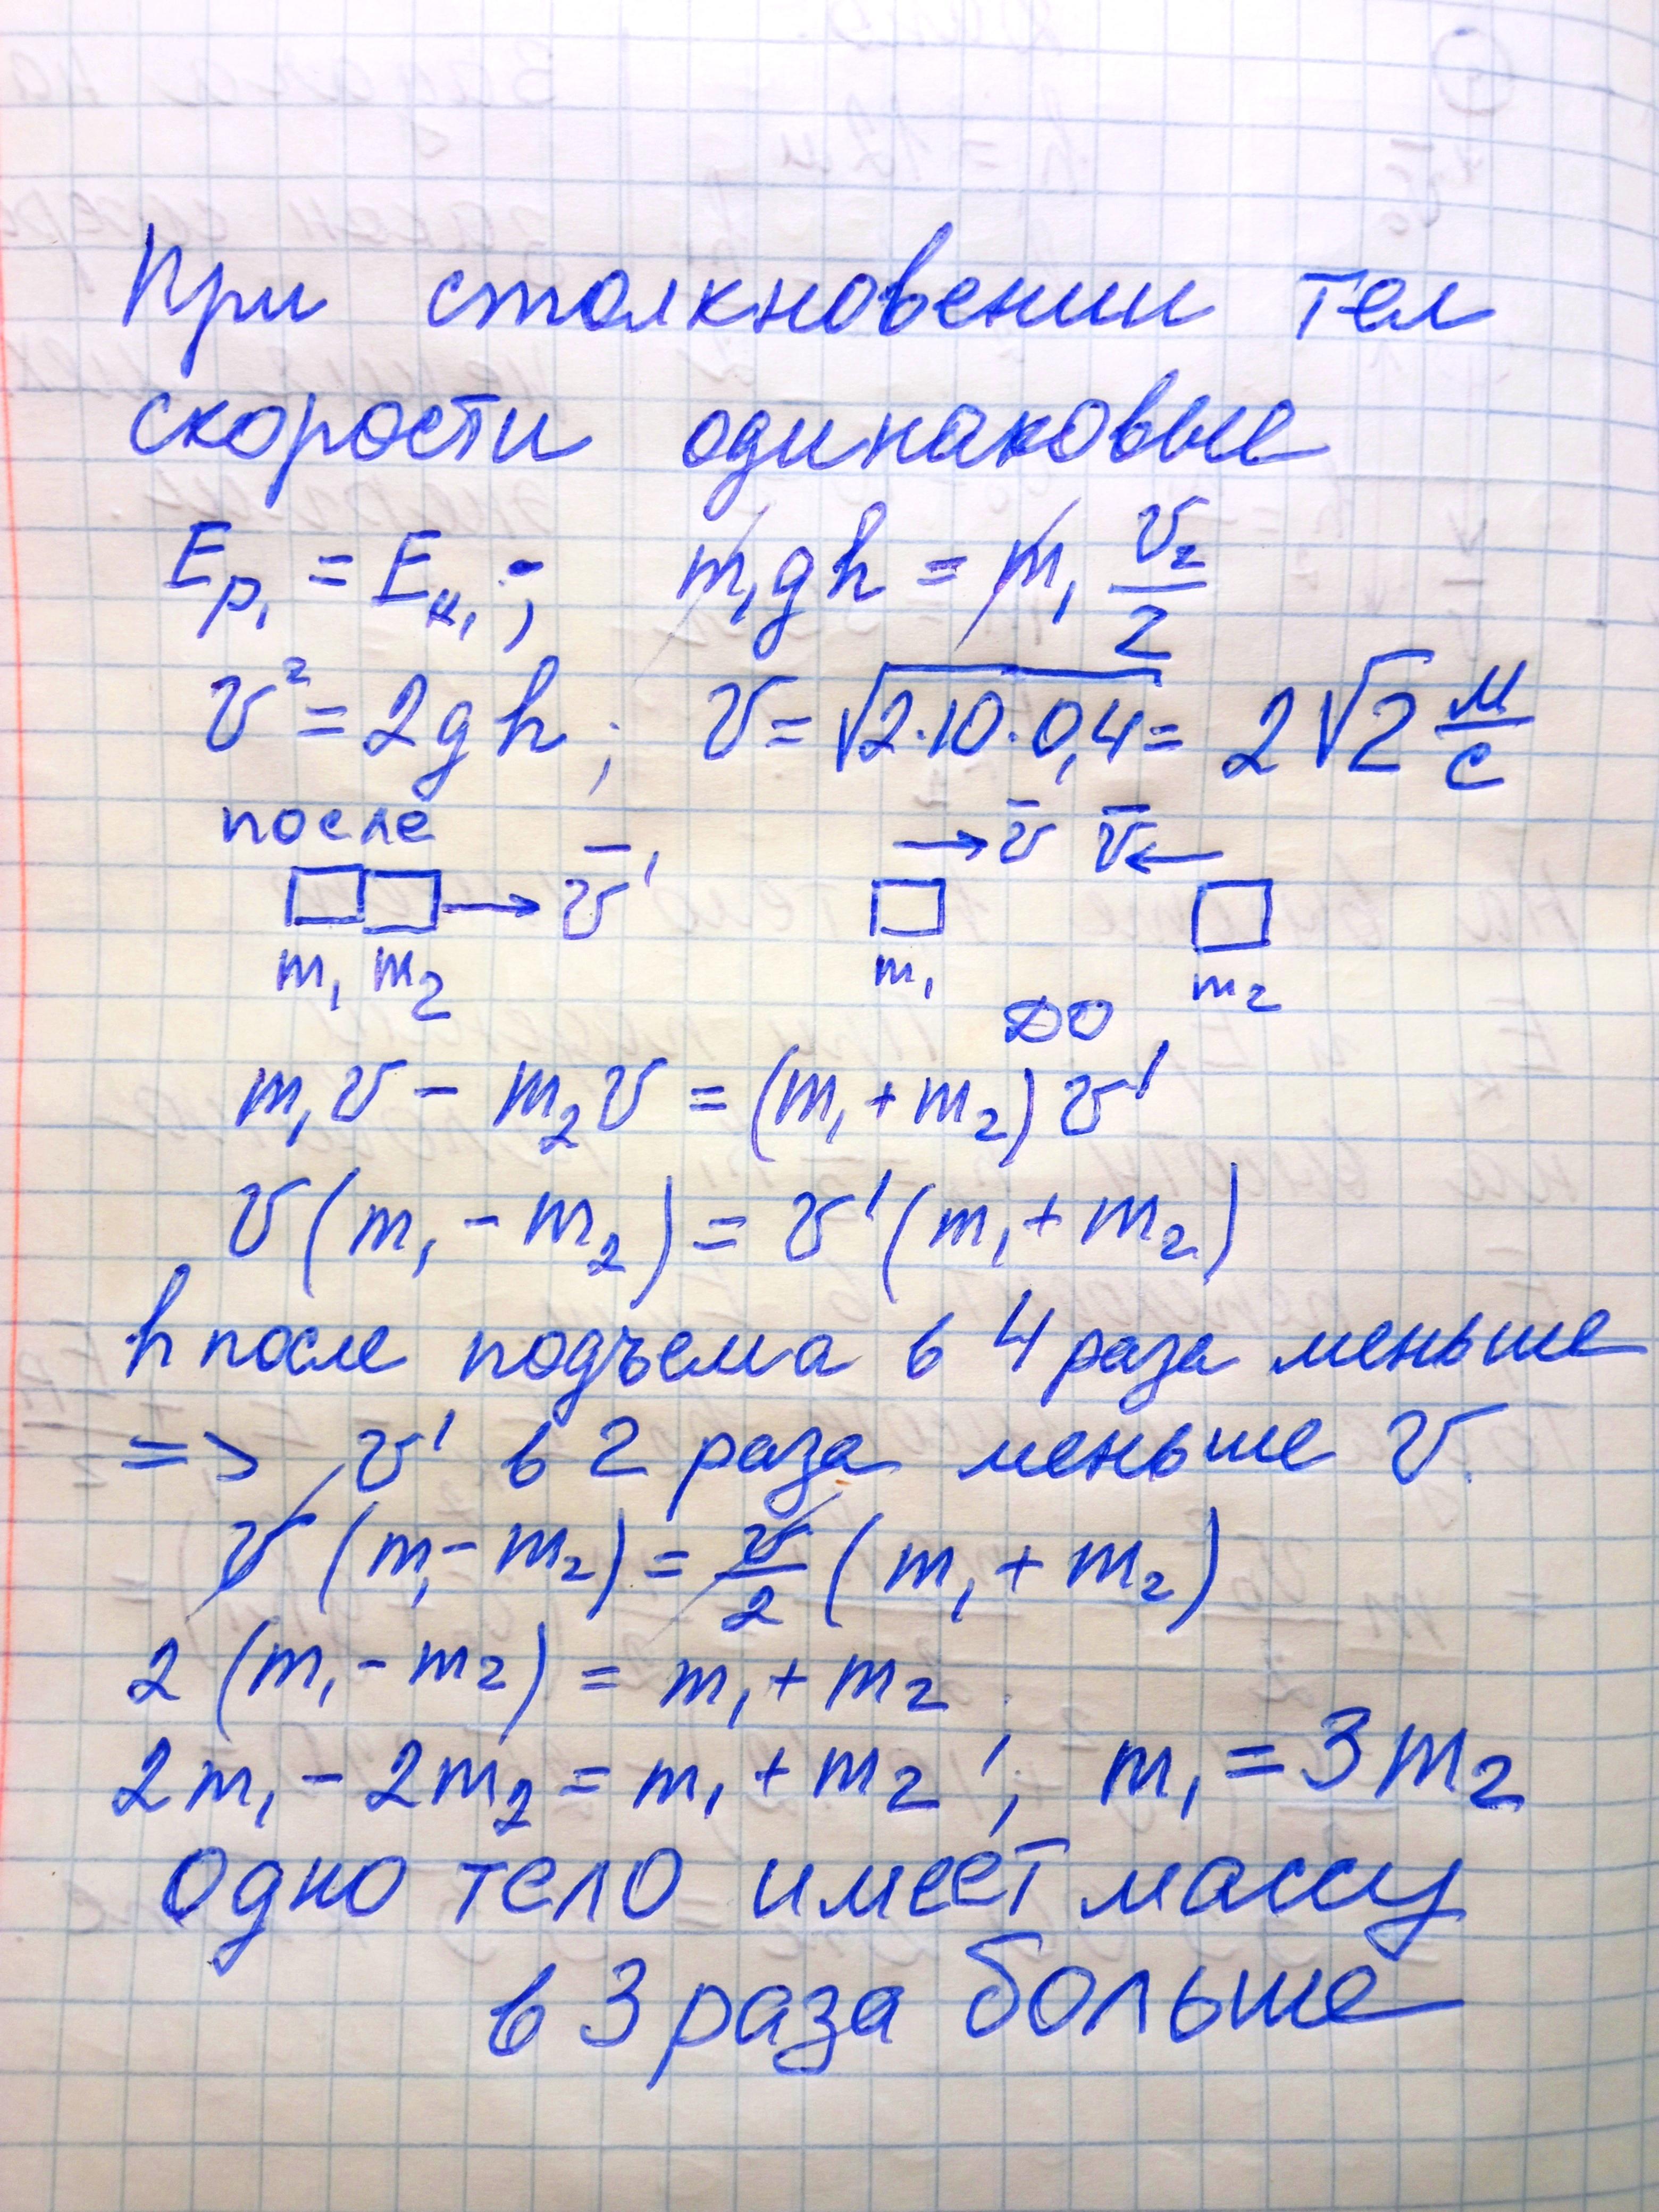 При столкновении тел
скорости одинаковые
Eр₁ = Eк₁; m₁gh = m₁ v₂/2
v² = 2gh; v = √2·10·0,4 = 2√2 м/с
после
v̄' v̄ v̄
m₁ m₂ m₁ m₂
до
m₁v - m₂v = (m₁ + m₂) v'
v(m₁ - m₂) = v'(m₁ + m₂)
h после подъема в 4 раза меньше
=> v' в 2 раза меньше v.
v (m₁ - m₂) = v/2 (m₁ + m₂)
2 (m₁ - m₂) = m₁ + m₂
2m₁ - 2m₂ = m₁ + m₂; m₁ = 3m₂
Одно тело имеет массу
в 3 раза больше